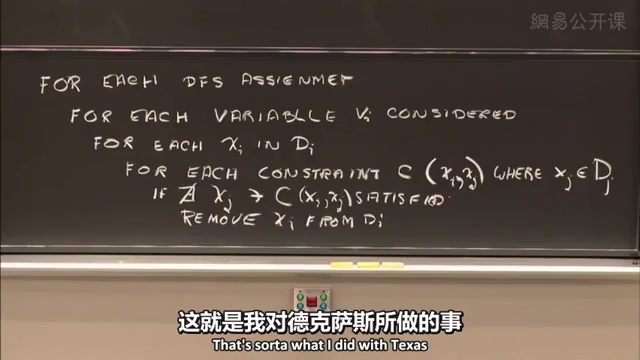 網易公开课
FOR EACH DFS ASSIGNMET
FOR EACH VARIABLLE Vi CONSIDERED
FOR EACH xi IN Di
FOR EACH CONSTRAINT C (xi, xj) WHERE xj ∈ Dj
IF ∄ xj ∋ C(xi, xj) SATISFIED
REMOVE xi FROM Di
这就是我对德克萨斯所做的事
That's sorta what I did with Texas